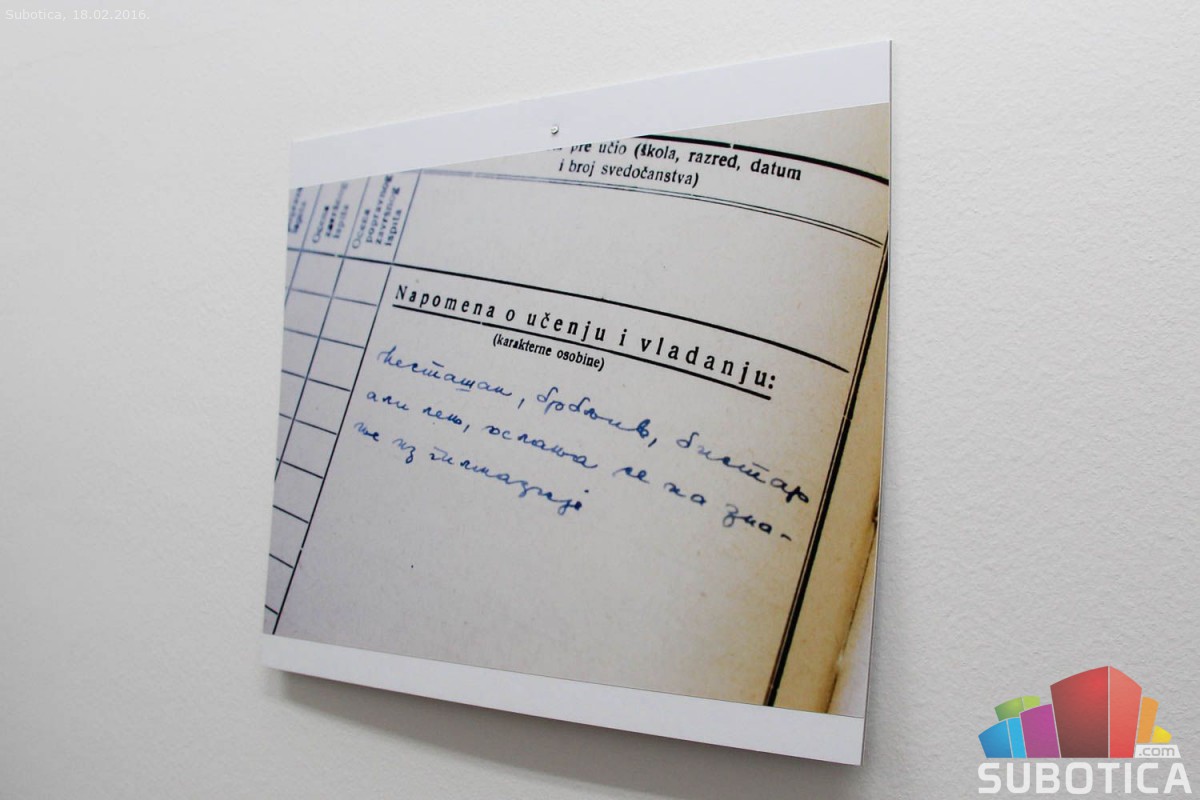 Subotica, 18.02.2016.
pre učio (škola, razred, datum
i broj svedočanstva)
Ocena
završnog
ispita
Ocena
popravnog
završnog
ispita
Napomena o učenju i vladanju:
(karakterne osobine)
несташан, брбљив, бистар
али лењ, ослања се на зна-
ње из гимназије
.com
SUBOTICA